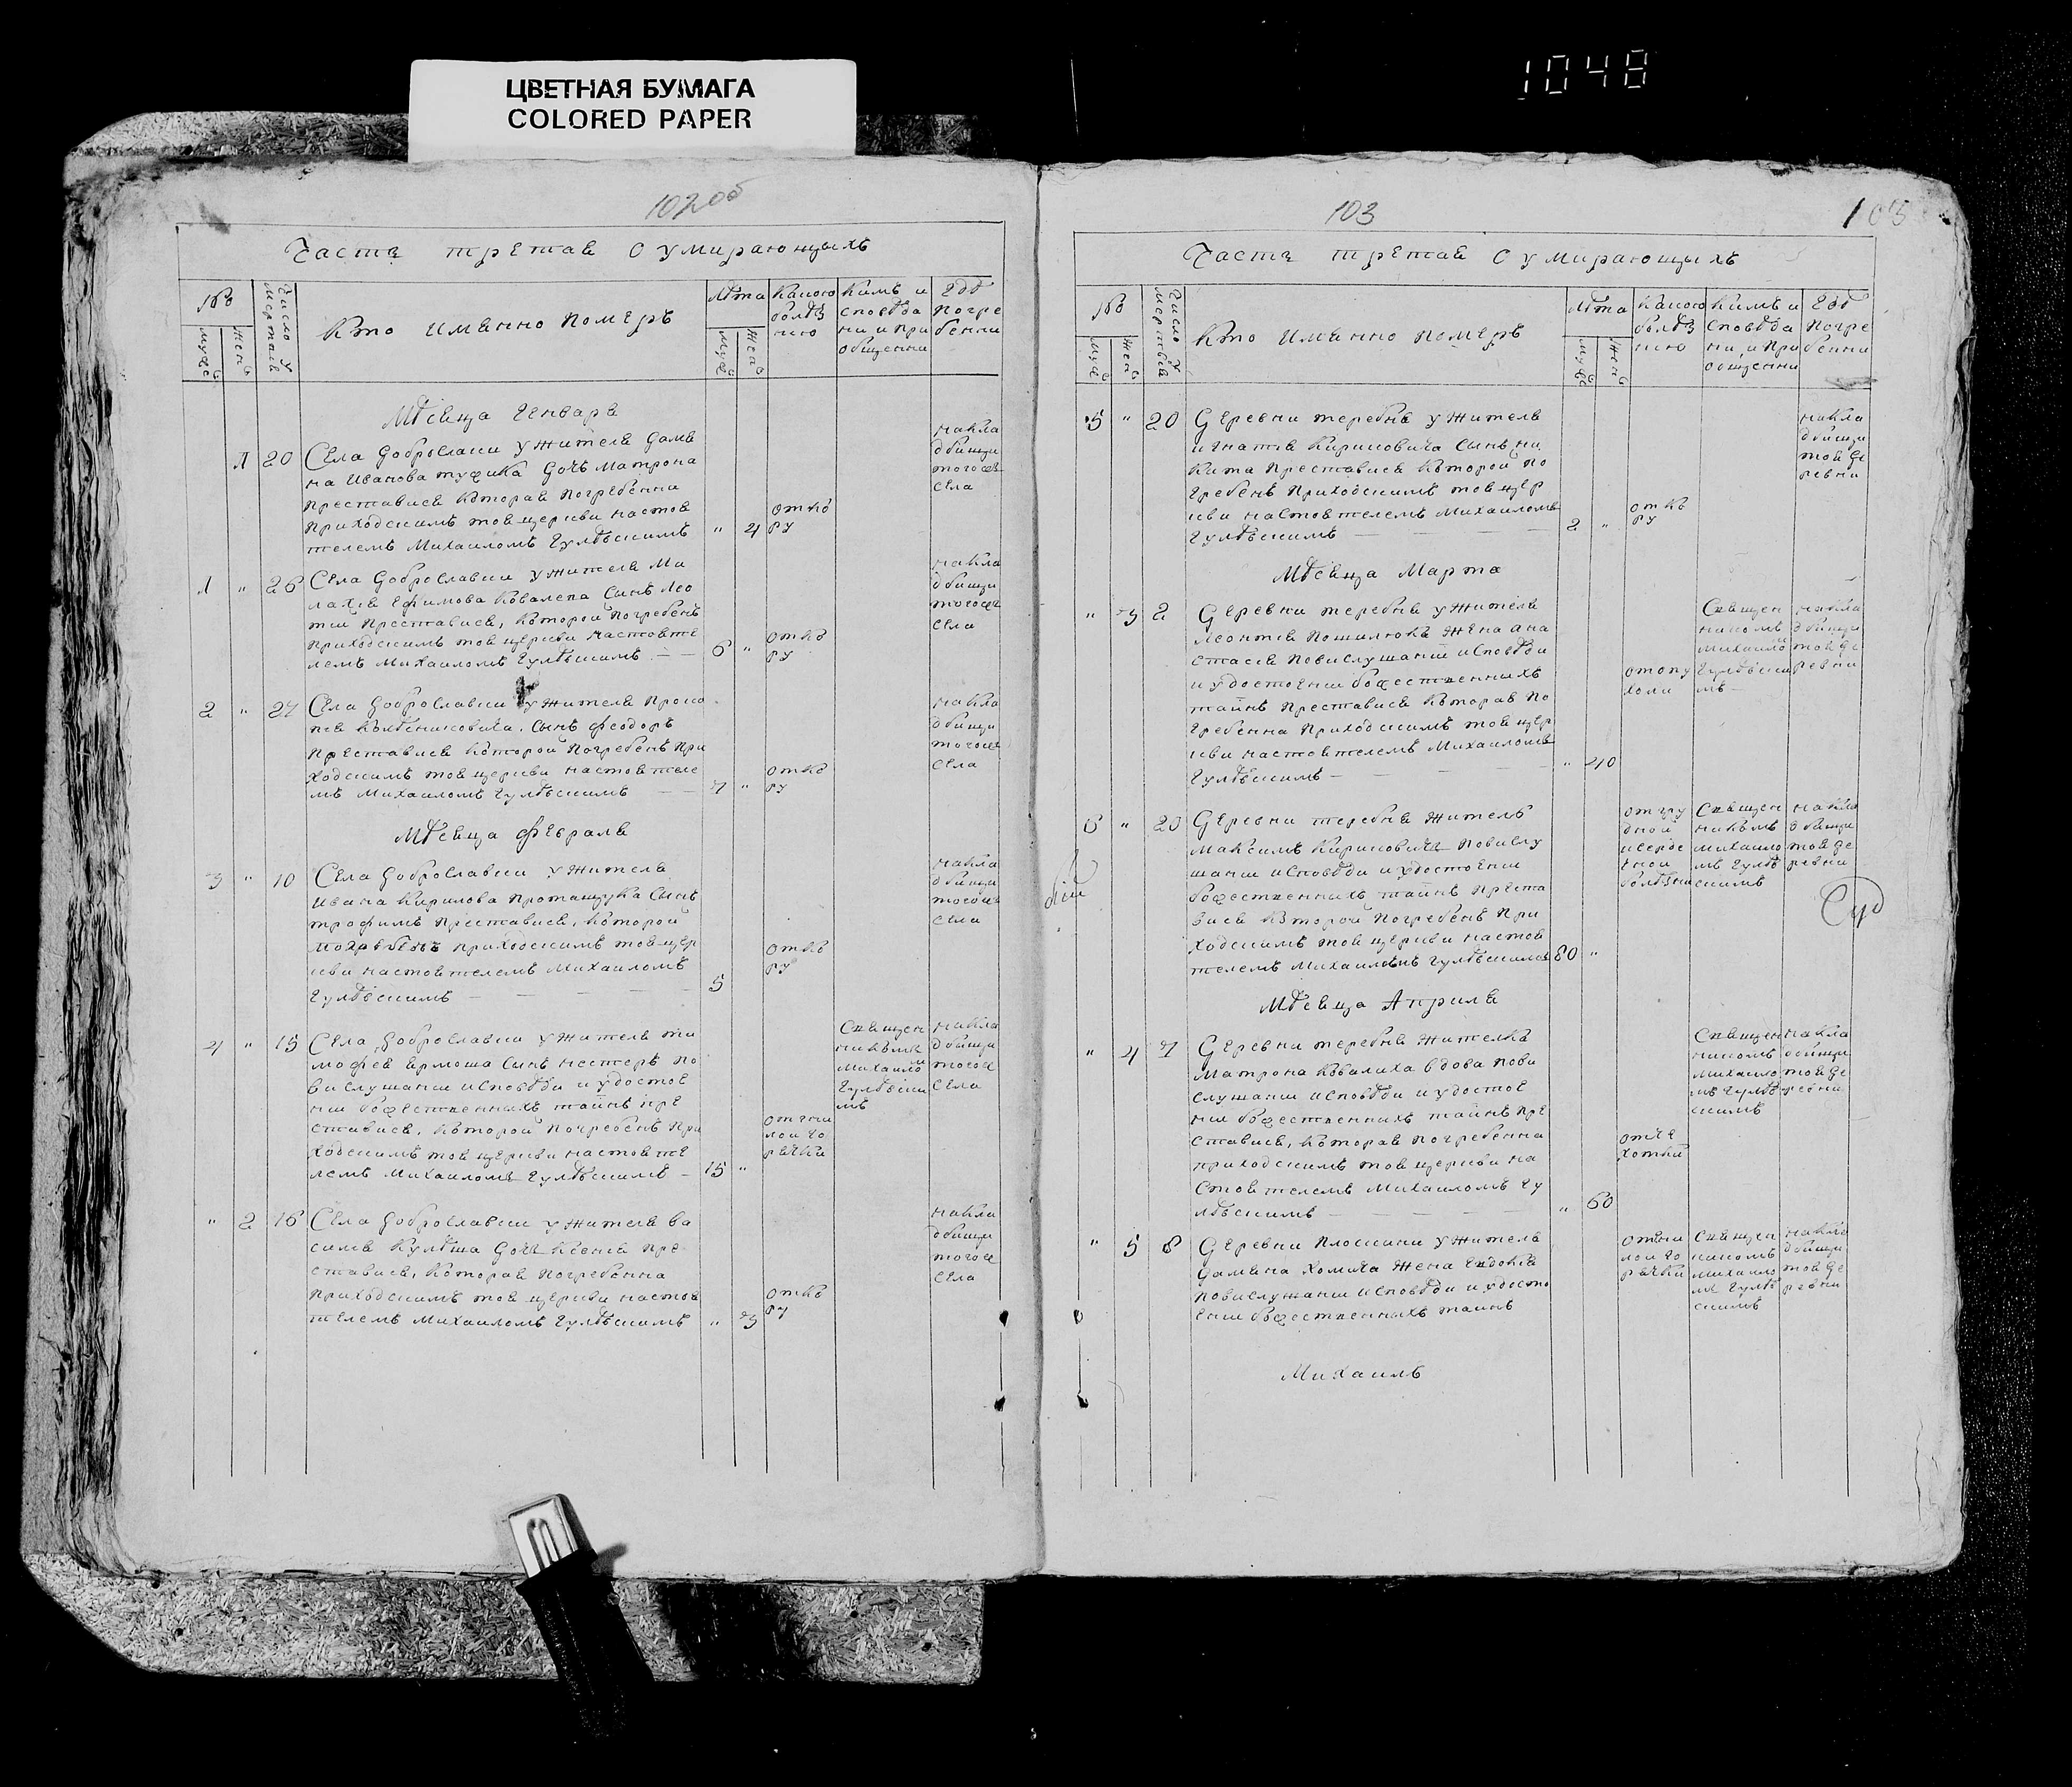 ЦВЕТНАЯ БУМАГА
COLORED PAPER
1048
102об
Часть третая о умирающыхъ
№
Лѣта
Какою
болѣз
нію
Кимъ и
сповѣда
ни и при
общенни
Гдѣ
погре
бенни
муж
жен
число у
мертвыя
Кто именно померъ
муж
жен
Мѣсяца Генваря
1 20 Села Доброславки у жителя Дамя
на Иванова Тузика дочь Матрона
преставися которая погребенна
приходскимъ тоя церкви настоя
телемъ Михаиломъ Гулѣвскимъ " 4
от ко
ру
на кла
дбищи
тогоже
села
1 " 26 Села Доброславки у жителя Ма
лахія Ефимова Ковалета сынъ Лео
тій преставися, которой погребенъ
приходскимъ тоя церкви настояте
лемъ Михаиломъ Гулѣвскимъ 6 "
от ко
ру
на кла
дбищи
тогоже
села
2 " 27 Села Доброславки у жителя Проко
пія Колѣсниковича. сынъ Феодоръ
преставися которой погребенъ при
ходскимъ тоя церкви настоятеле
мъ Михаиломъ Гулѣвскимъ 7 "
от ко
ру
на кла
дбищи
тогоже
села
Мѣсяца Февраля
3 " 10 Села Доброславки у жителя
Ивана Кирилова Проташука сынъ
Трофимъ преставися, которой
погребенъ приходскимъ тоя цер
кви настоятелемъ Михаиломъ
Гулѣвскимъ 5
от ко
ру
на кла
дбищи
тогоже
села
4 " 15 Села Доброславки у жителя Ти
мофея Ярмоша сынъ Нестеръ по
выслушаніи исповѣди и удостое
ніи божественныхъ тайнъ пре
ставися, которой погребенъ при
ходскимъ тоя церкви настояте
лемъ Михаиломъ Гулѣвскимъ 15 "
от гни
лой го
рячки
Священ
никомъ
Михаило
Гулѣвски
мъ
на кла
дбищи
тогоже
села
" 2 16 Села Доброславки у жителя Ва
силя Кулѣша дочь Ксенія пре
ставися, которая погребенна
приходскимъ тоя церкви настоя
телемъ Михаиломъ Гулѣвскимъ " 3
от ко
ру
на кла
дбищи
тогоже
села
103
103
Часть третая о умирающыхъ
№
муж
жен
число у
мертвыя
Кто именно померъ
Лѣта
муж
жен
Какою
болѣз
нію
Кимъ и
сповѣда
ни, и при
общенни
Гдѣ
погре
бенни
5 " 20 Деревни Теребня у жителя
Игнатія Кириковича сынъ Ни
кита преставися которой по
гребенъ приходскимъ тоя цер
кви настоятелемъ Михаиломъ
Гулѣвскимъ 2 "
от ко
ру
на кла
дбищи
той де
ревни
Мѣсяца Марта
" 3 2 Деревни Теребня у жителя
Леонтія жена Ана
стасія повыслушаніи исповѣди
и удостоеніи божественныхъ
тайнъ преставися которая по
гребенна приходскимъ тоя цер
кви настоятелемъ Михаиломъ
Гулѣвскимъ " 40
от опу
холи
Священ
никомъ
Михаило
Гулѣвски
мъ
на кла
дбищи
той де
ревни
6 " 23 Деревни Теребня житель
Максимъ Кириковичъ повыслу
шаніи исповѣди и удостоеніи
божественныхъ тайнъ преста
вися которой погребенъ при
ходскимъ тоя церкви настоя
телемъ Михаиломъ Гулѣвскимъ 80 "
от гру
дной
и серде
чной
болѣзни
Священ
никомъ
Михаило
мъ Гулѣ
вскимъ
на кла
дбищи
той де
ревни
Мѣсяца Априля
" 4 7 Деревни Теребня жителка
Матрона Ковалиха вдова повы
слушаніи исповѣди и удостое
ніи божественныхъ тайнъ пре
ставися, которая погребенна
приходскимъ тоя церкви на
стоятелемъ Михаиломъ Гу
лѣвскимъ " 60
от че
хотки
Священ
никомъ
Михаило
мъ Гулѣ
вскимъ
на кла
дбищи
той де
ревни
" 5 8 Деревни Плоскини у жителя
Дамяна Хомича жена Евдокія
повыслушаніи исповѣди и удосто
еніи божественныхъ тайнъ
от гни
лой го
рячки
Священ
никомъ
Михаило
мъ Гулѣ
вскимъ
на кла
дбищи
той де
ревни
Михаилъ